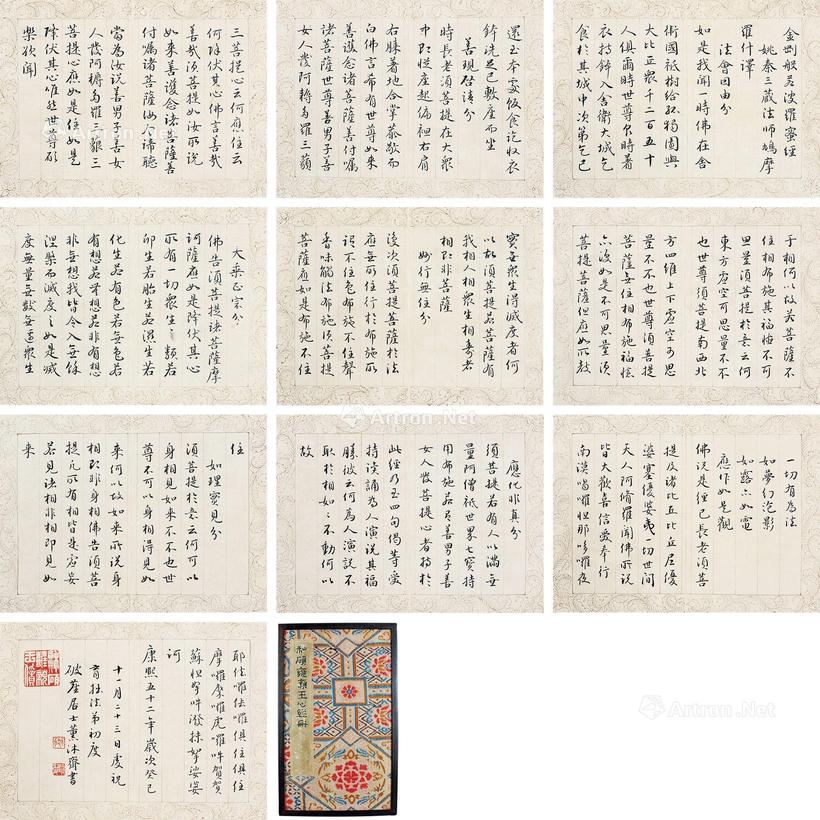 金剛般若波羅蜜經
姚秦三藏法師鳩摩
羅什譯
法會因由分
如是我聞一時佛在舍
衛國祇樹給孤獨園與
大比丘眾千二百五十
人俱爾時世尊食時著
衣持鉢入舍衛大城乞
食於其城中次第乞已
還至本處飯食訖收衣
鉢洗足已敷座而坐
善現啟請分
時長老須菩提在大眾
中即從座起偏袒右肩
右膝著地合掌恭敬而
白佛言希有世尊如來
善護念諸菩薩善付囑
諸菩薩世尊善男子善
女人發阿耨多羅三藐
三菩提心云何應住云
何降伏其心佛言善哉
善哉須菩提如汝所說
如來善護念諸菩薩善
付囑諸菩薩汝今諦聽
當為汝說善男子善女
人發阿耨多羅三藐三
菩提心應如是住如是
降伏其心唯然世尊願
樂欲聞
大乘正宗分
佛告須菩提諸菩薩摩
訶薩應如是降伏其心
所有一切眾生之類若
卵生若胎生若濕生若
化生若有色若無色若
有想若無想若非有想
非無想我皆令入無餘
涅槃而滅度之如是滅
度無量無數無邊眾生
實無眾生得滅度者何
以故須菩提若菩薩有
我相人相眾生相壽者
相即非菩薩
妙行無住分
復次須菩提菩薩於法
應無所住行於布施所
謂不住色布施不住聲
香味觸法布施須菩提
菩薩應如是布施不住
于相何以故若菩薩不
住相布施其福德不可
思量須菩提於意云何
東方虛空可思量不不
也世尊須菩提南西北
方四維上下虛空可思
量不不也世尊須菩提
菩薩無住相布施福德
亦復如是不可思量須
菩提菩薩但應如所教
住
如理實見分
須菩提於意云何可以
身相見如來不不也世
尊不可以身相得見如
來何以故如來所說身
相即非身相佛告須菩
提凡所有相皆是虛妄
若見諸相非相即見如
來
應化非真分
須菩提若有人以滿無
量阿僧祇世界七寶持
用布施若有善男子善
女人發菩提心者持於
此經乃至四句偈等受
持讀誦為人演說其福
勝彼云何為人演說不
取於相如如不動何以
故
一切有為法
如夢幻泡影
如露亦如電
應作如是觀
佛說是經已長老須菩
提及諸比丘比丘尼優
婆塞優婆夷一切世間
天人阿脩羅聞佛所說
皆大歡喜信受奉行
南漠喝囉怛那哆囉夜
耶佉囉佉囉俱住俱住
摩囉摩囉虎囉吽賀賀
蘇怛拏吽潑抹拏娑婆
訶
康熙五十二年歲次癸巳
十一月二十三日虔祝
育祉法弟初度
破塵居士薰沐齋書
和碩雍親王寶
和碩雍親王心經冊
Artron.Net
Artron.Net
Artron.Net
Artron.Net